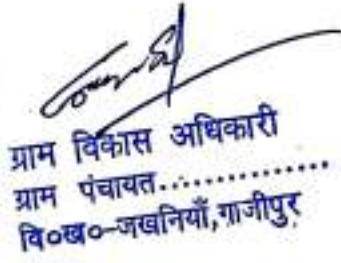 ग्राम विकास अधिकारी
ग्राम पंचायत...............
वि०ख०-जखनियाँ,गाजीपुर